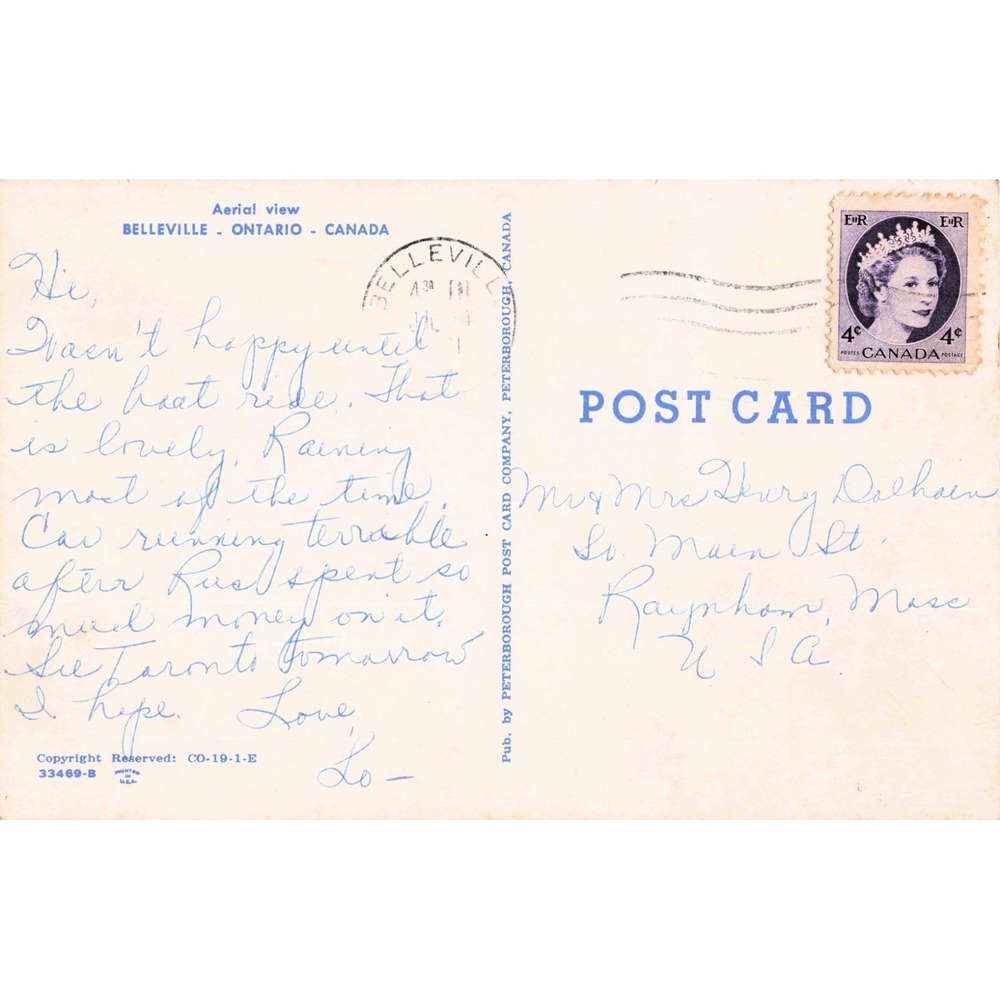 Aerial view
BELLEVILLE - ONTARIO - CANADA
Hi,
Wasn't happy until
the boat ride. That
is lovely. Raining
most of the time.
Car running terrible
after Russ spent so
much money on it.
See Toronto tomorrow
I hope. Love,
Lo -
Copyright Reserved: CO-19-1-E
33469-B
PRINTED
IN
U.S.A.
Pub. by PETERBOROUGH POST CARD COMPANY, PETERBOROUGH, CANADA
BELLEVILL
EIIR EIIR
4¢ 4¢
POSTES CANADA POSTAGE
POST CARD
Mr & Mrs Henry
So. Main St.
Raynham, Mass
U S A